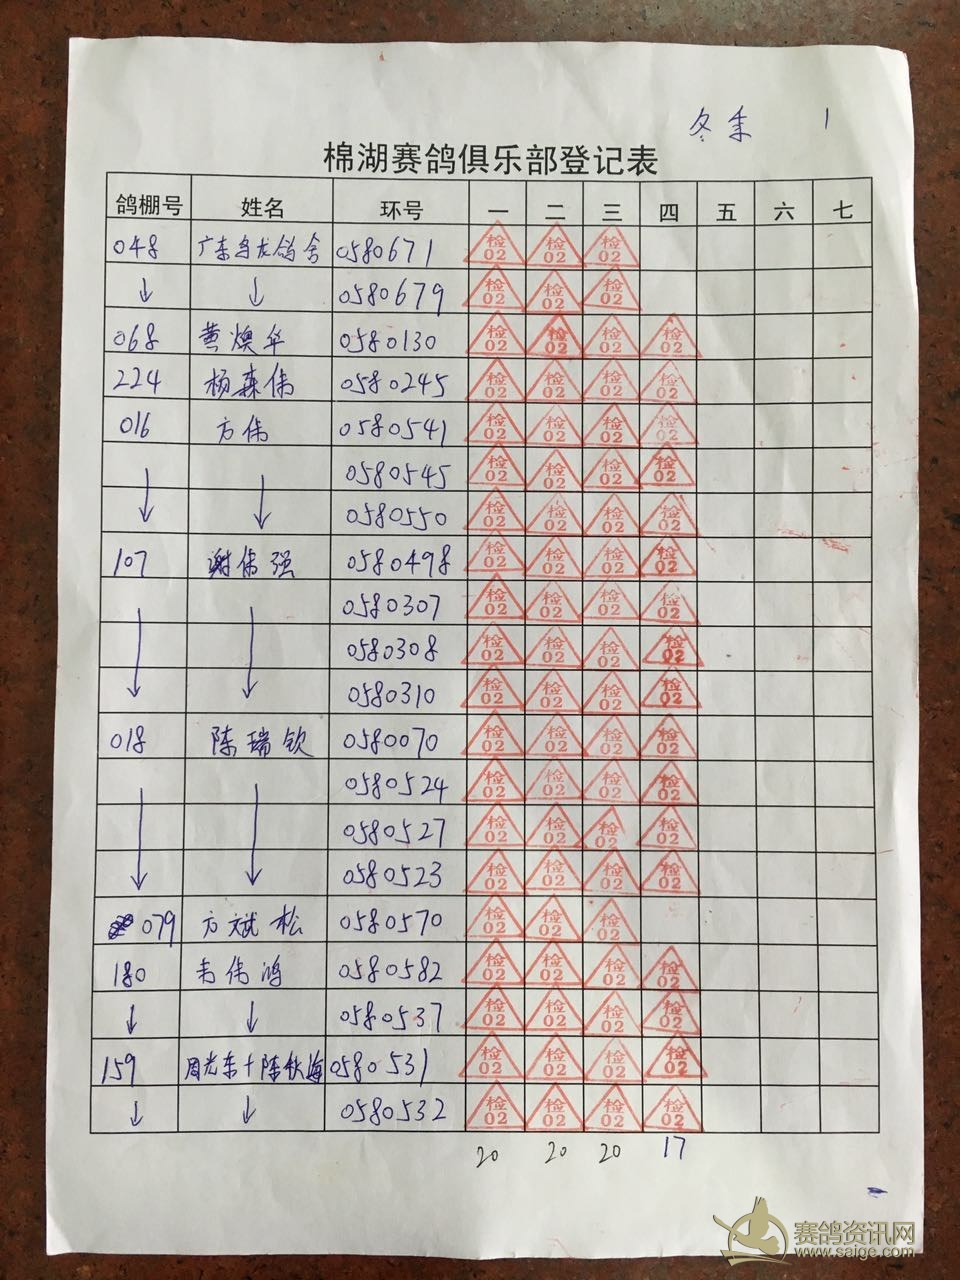 冬季 1
棉湖赛鸽俱乐部登记表
鸽棚号 姓名 环号 一 二 三 四 五 六 七
048 广东乌龙鸽舍 0580671 检02 检02 检02
↓ ↓ 0580679 检02 检02 检02
068 黄焕平 0580130 检02 检02 检02 检02
224 杨森伟 0580245 检02 检02 检02 检02
016 方伟 0580541 检02 检02 检02 检02
0580545 检02 检02 检02 检02
↓ ↓ 0580550 检02 检02 检02 检02
107 谢伟强 0580498 检02 检02 检02 检02
0580307 检02 检02 检02 检02
0580308 检02 检02 检02 检02
↓ ↓ 0580310 检02 检02 检02 检02
018 陈瑞钦 0580070 检02 检02 检02 检02
0580524 检02 检02 检02 检02
0580527 检02 检02 检02 检02
↓ ↓ 0580523 检02 检02 检02 检02
079 方斌松 0580570 检02 检02 检02
180 韦伟鸿 0580582 检02 检02 检02 检02
↓ ↓ 0580537 检02 检02 检02 检02
159 周光东+陈钦海 0580531 检02 检02 检02 检02
↓ ↓ 0580532 检02 检02 检02 检02
20 20 20 17
赛鸽资讯网
www.saige.com